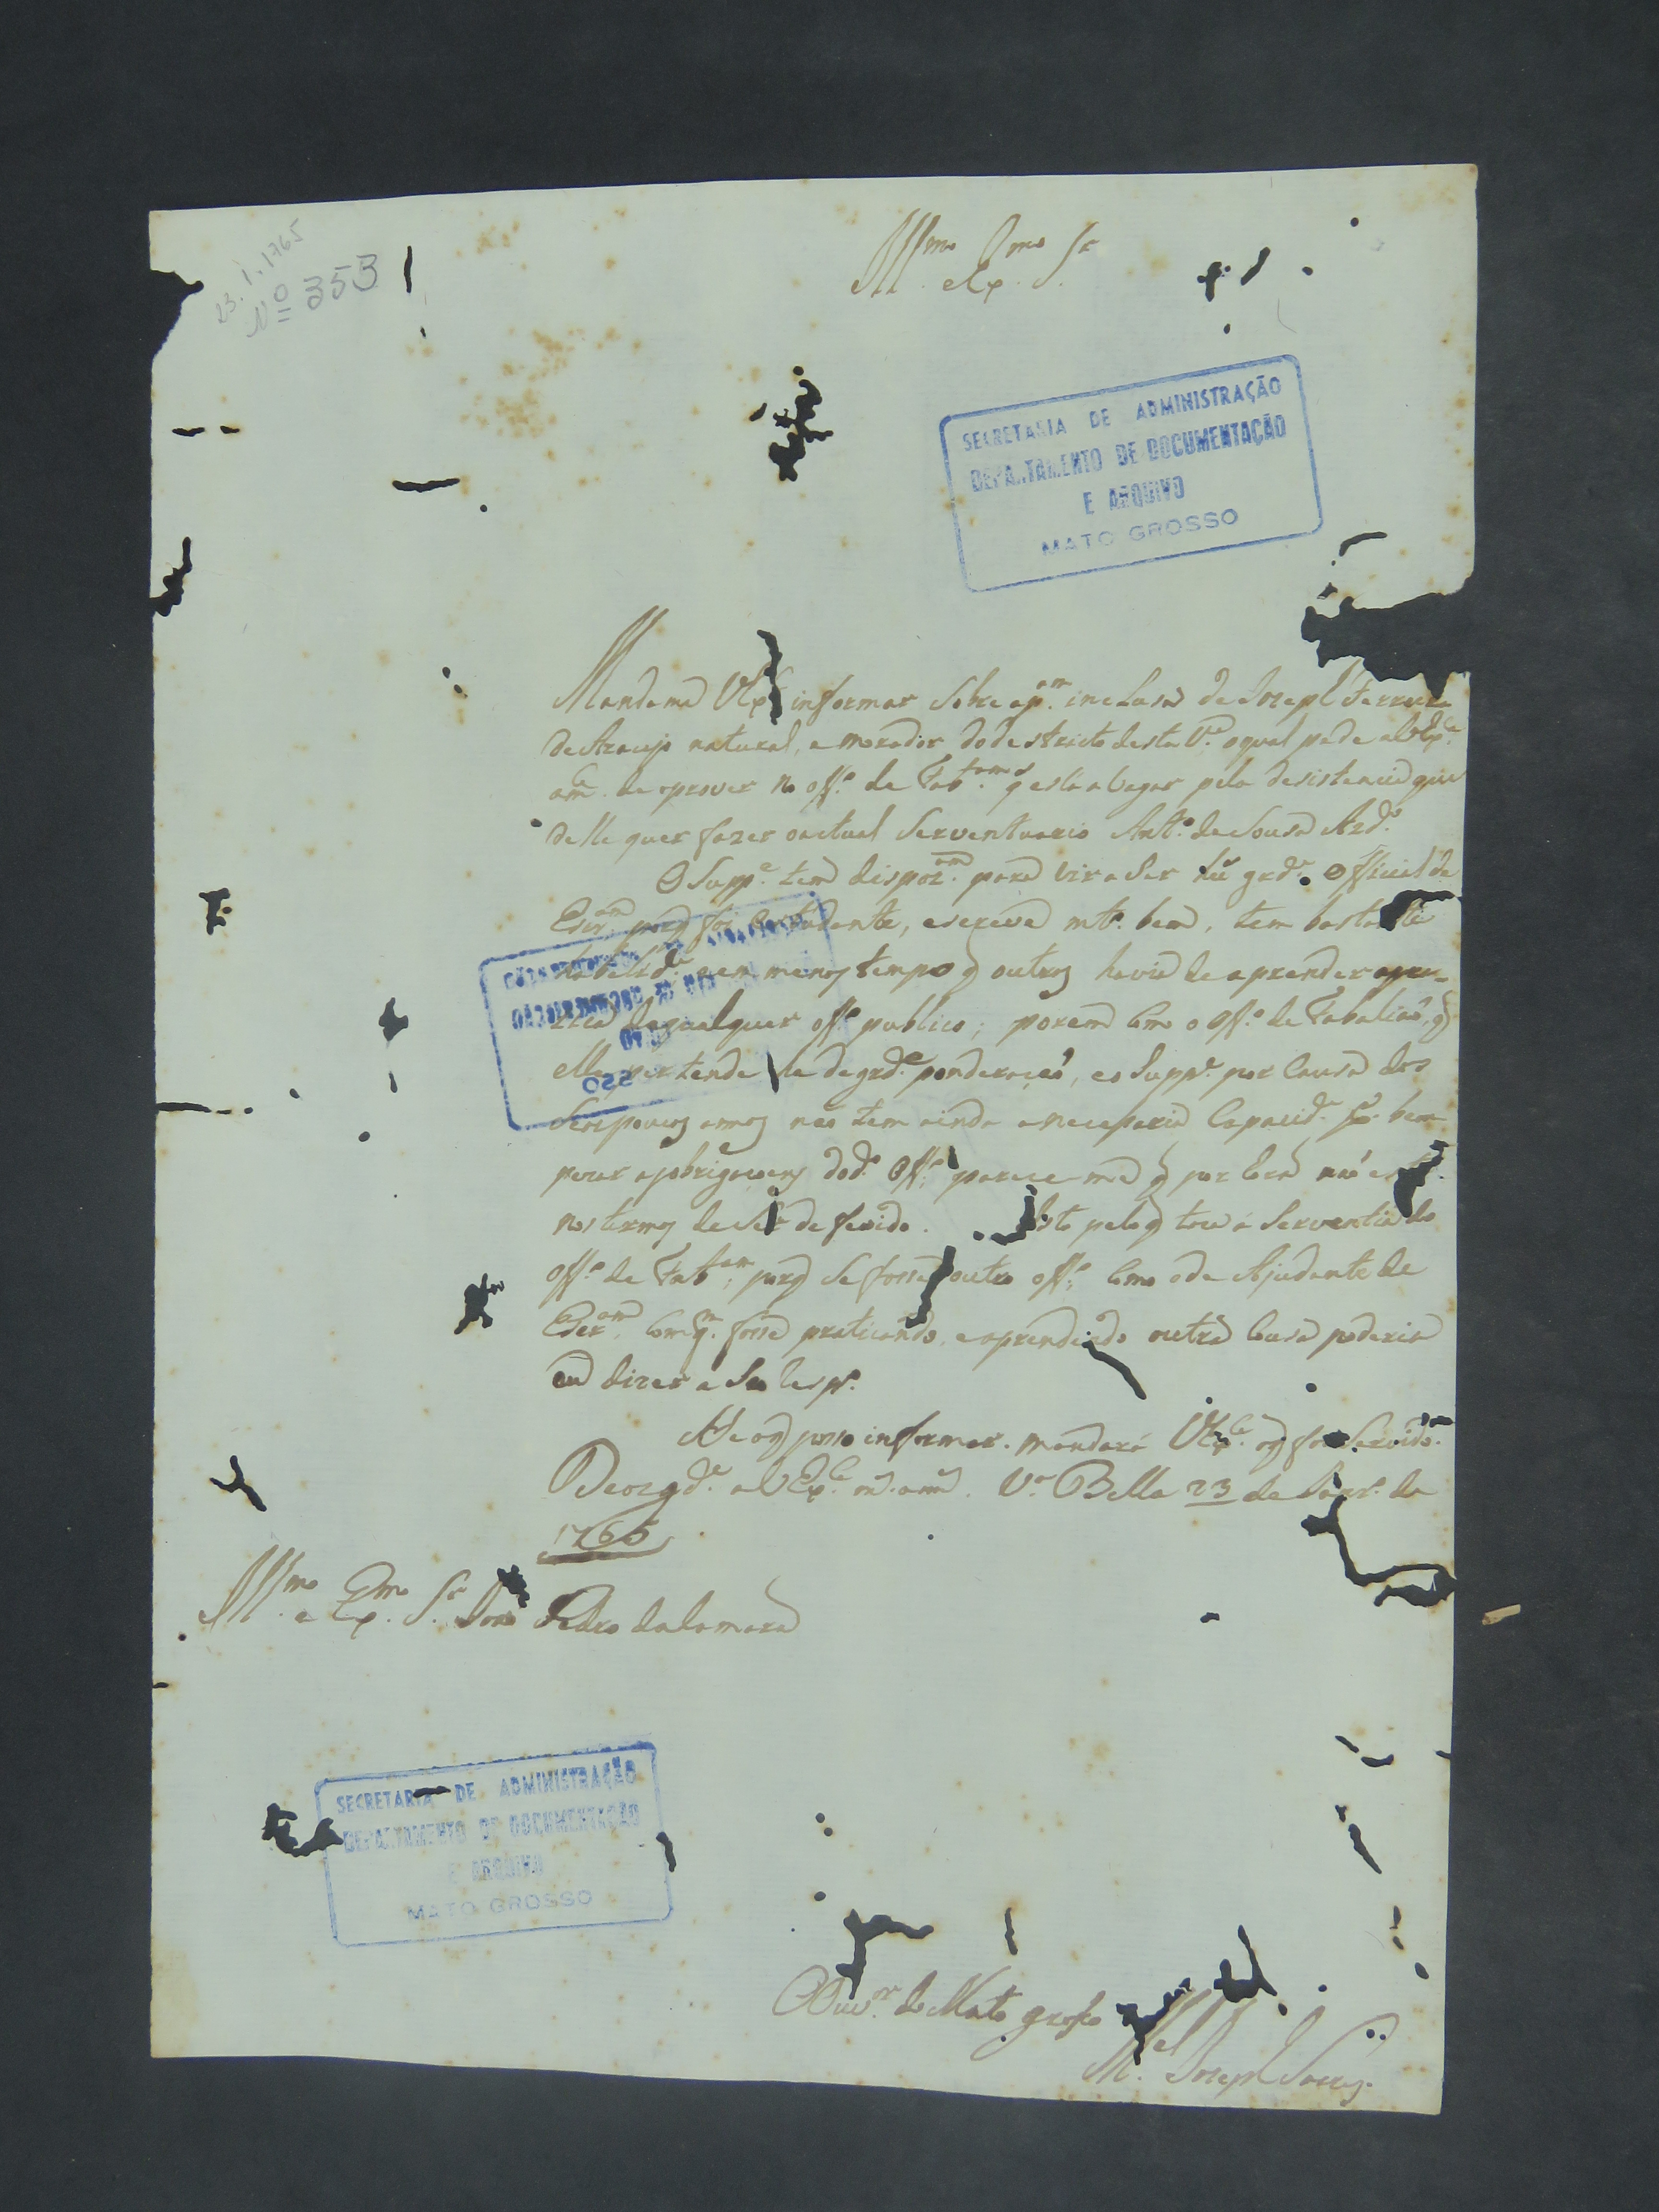 23.1.1765
Nº 353
Illmo e Exmo Sr
SECRETARIA DE ADMINISTRAÇÃO
DEPARTAMENTO DE DOCUMENTAÇÃO
E ARQUIVO
MATO GROSSO
Manda me VExª informar sobre a pam incluza de Joseph Ferreira
de Araujo natural, e morador do destricto desta Vª oqual pede a VExcª
de o prover no offº de Tabam q está a vagar pela desistencia que
delle quer fazer o actual Serventuario Antº de Sousa Azdº
O Suppe tem dispozam para vir a ser hũ grde Official de
Escram porq foi estudante, escreve mtº bem, tem bastante
habelide e em menos tempo q outros havia de aprender a pra-
tica de qualquer offº publico; porem como o Offº de Tabalião, q
elle pertende he de grde ponderação, e o Suppe por causa dos
seus poucos annos não tem ainda a necessaria capacide
as obrigaçoens do dº Offº, parece-me q por hora não
nos termos de ser deferido. Isto pelo q toca á Serventia do
offº de Tabam; porq se fosse outro offº, como o de Ajudante de
Escram, com qm fosse praticando, e aprendendo outra cousa poderia
eu dizer a seu respº
He o q posso informar. mandará VExcª o q for servido.
Deos gde a VExcª ms ans. Vª Bella 23 de Janrº de
1765
Illmo e Exmo Sr Dom Pedro da Camara
SECRETARIA DE ADMINISTRAÇÃO
DEPARTAMENTO DE DOCUMENTAÇÃO
E ARQUIVO
MATO GROSSO
O Ouvor do Mato grosso
Mel Joseph Soares